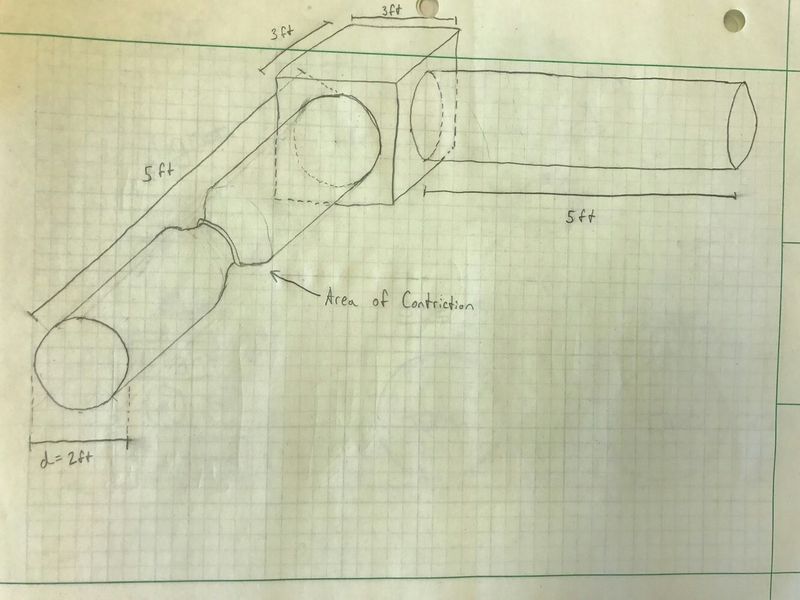 3ft
3ft
5ft
5ft
Area of Contriction
d=2ft